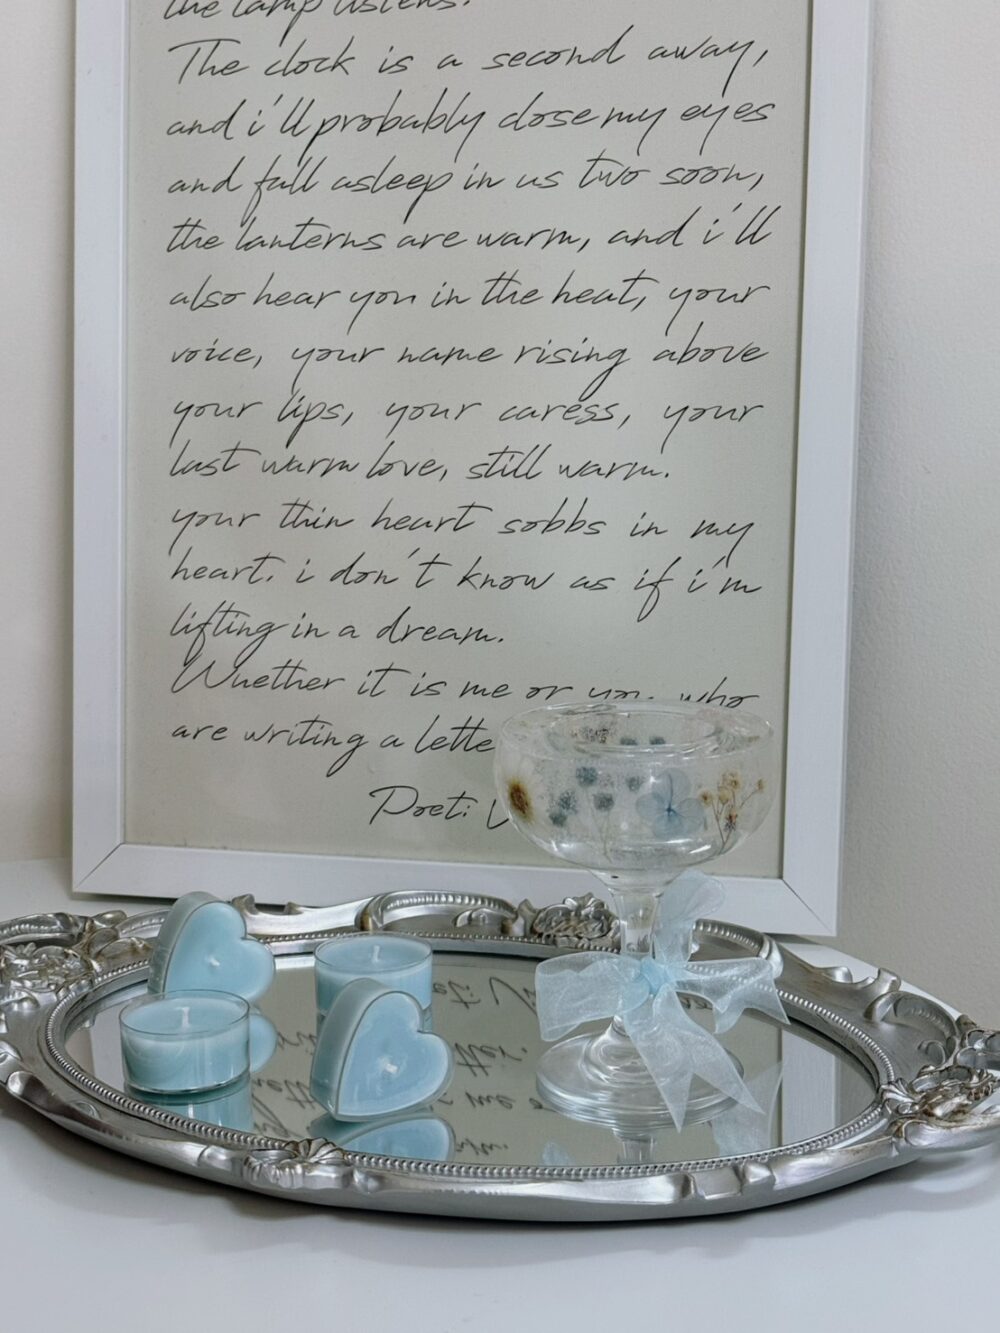 the lamp listens.
The clock is a second away,
and i'll probably close my eyes
and fall asleep in us two soon,
the lanterns are warm, and i'll
also hear you in the heat, your
voice, your name rising above
your lips, your caress, your
last warm love, still warm.
your thin heart sobbs in my
heart. i don't know as if i'm
lifting in a dream.
Whether it is me or you who
are writing a lette
Poet: